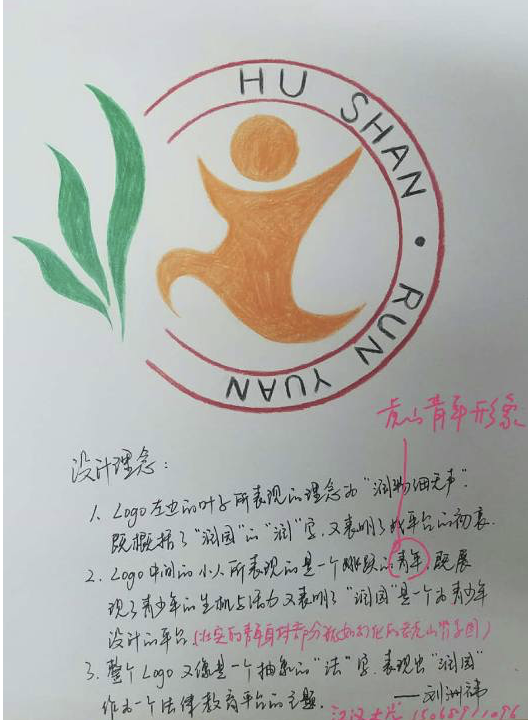 HU SHAN · RUN YUAN
虎山青年形象
设计理念：
1. Logo左边的叶子所表现的理念为“润物细无声”.
既概括了“润园”的“润”字，又表明了我平台的初衷.
2. Logo中间的小人所表现的是一个跳跃的青年，既展
现了青少年的生机与活力又表明了“润园”是一个为青少年
设计的平台（壮实的青年身材部分
3. 整个Logo又像是一个抽象的“法”字，表现出“润园”
作为一个法律教育平台的主题.
——刘洲